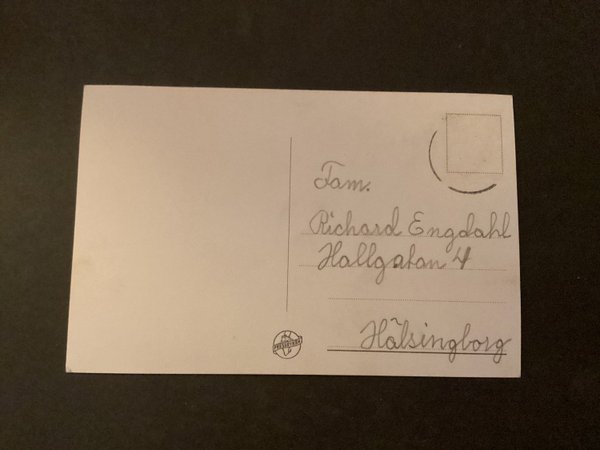 Fam.
Richard Engdahl
Hallgatan 4
Hälsingborg